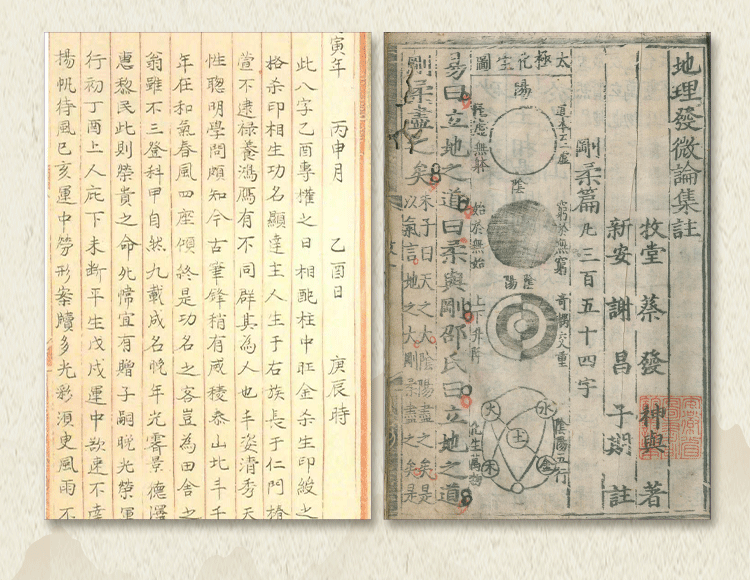 寅年 丙申月 乙酉日 庚辰時
此八字乙酉專權之日相配柱中旺金杀生印綬之
格杀印相生功名顯達主人生于右族長于仁門椿
萱不逮祿養鴻鴈有不同群其為人也丰姿清秀天
性聰明學問頗知今古筆鋒稍有威稜泰山北斗千
年在和氣春風四座傾終是功名之客豈為田舍之
翁雖不三登科甲自然九載成名晚年光霽景德澤
惠黎民此則榮貴之命 幃宜有贈子嗣晚光榮運
行初丁酉上人庇下未斷平生戊戌運中欲速不達
揚帆待風己亥運中勞形案牘多光彩須更風雨不
地理發微論集註
牧堂 蔡發 神與 著
新安 謝昌 子期 註
剛柔篇 凡三百五十四字
太極化生圖
陽
陰
窮於無窮
始於無始
陰陽
上下升降
陰陽五行
化生萬物
火
水
土
木
金
易曰立地之道曰柔與剛邵氏曰立地之道
剛柔盡之矣
朱子曰天之大陰陽盡之矣是
以氣言地之大剛柔盡之矣是